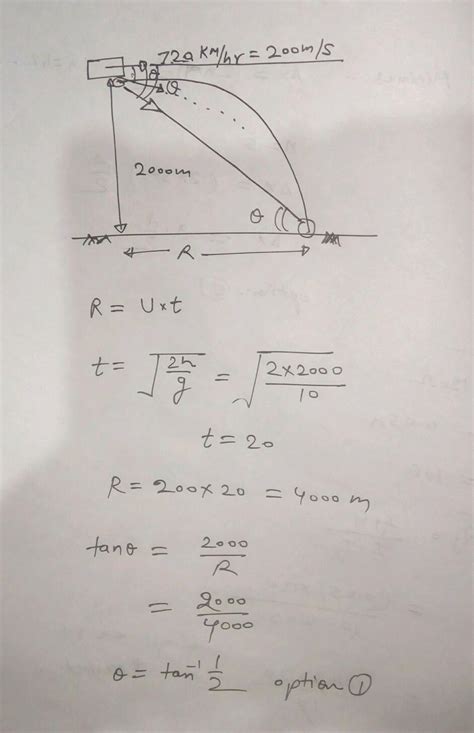 720 KM/hr = 200m/s
θ
2000m
θ
R
R = U×t
t = √2h/g = √2×2000/10
t = 20
R = 200×20 = 4000 m
tanθ = 2000/R
= 2000/4000
θ = tan⁻¹ 1/2 option ①